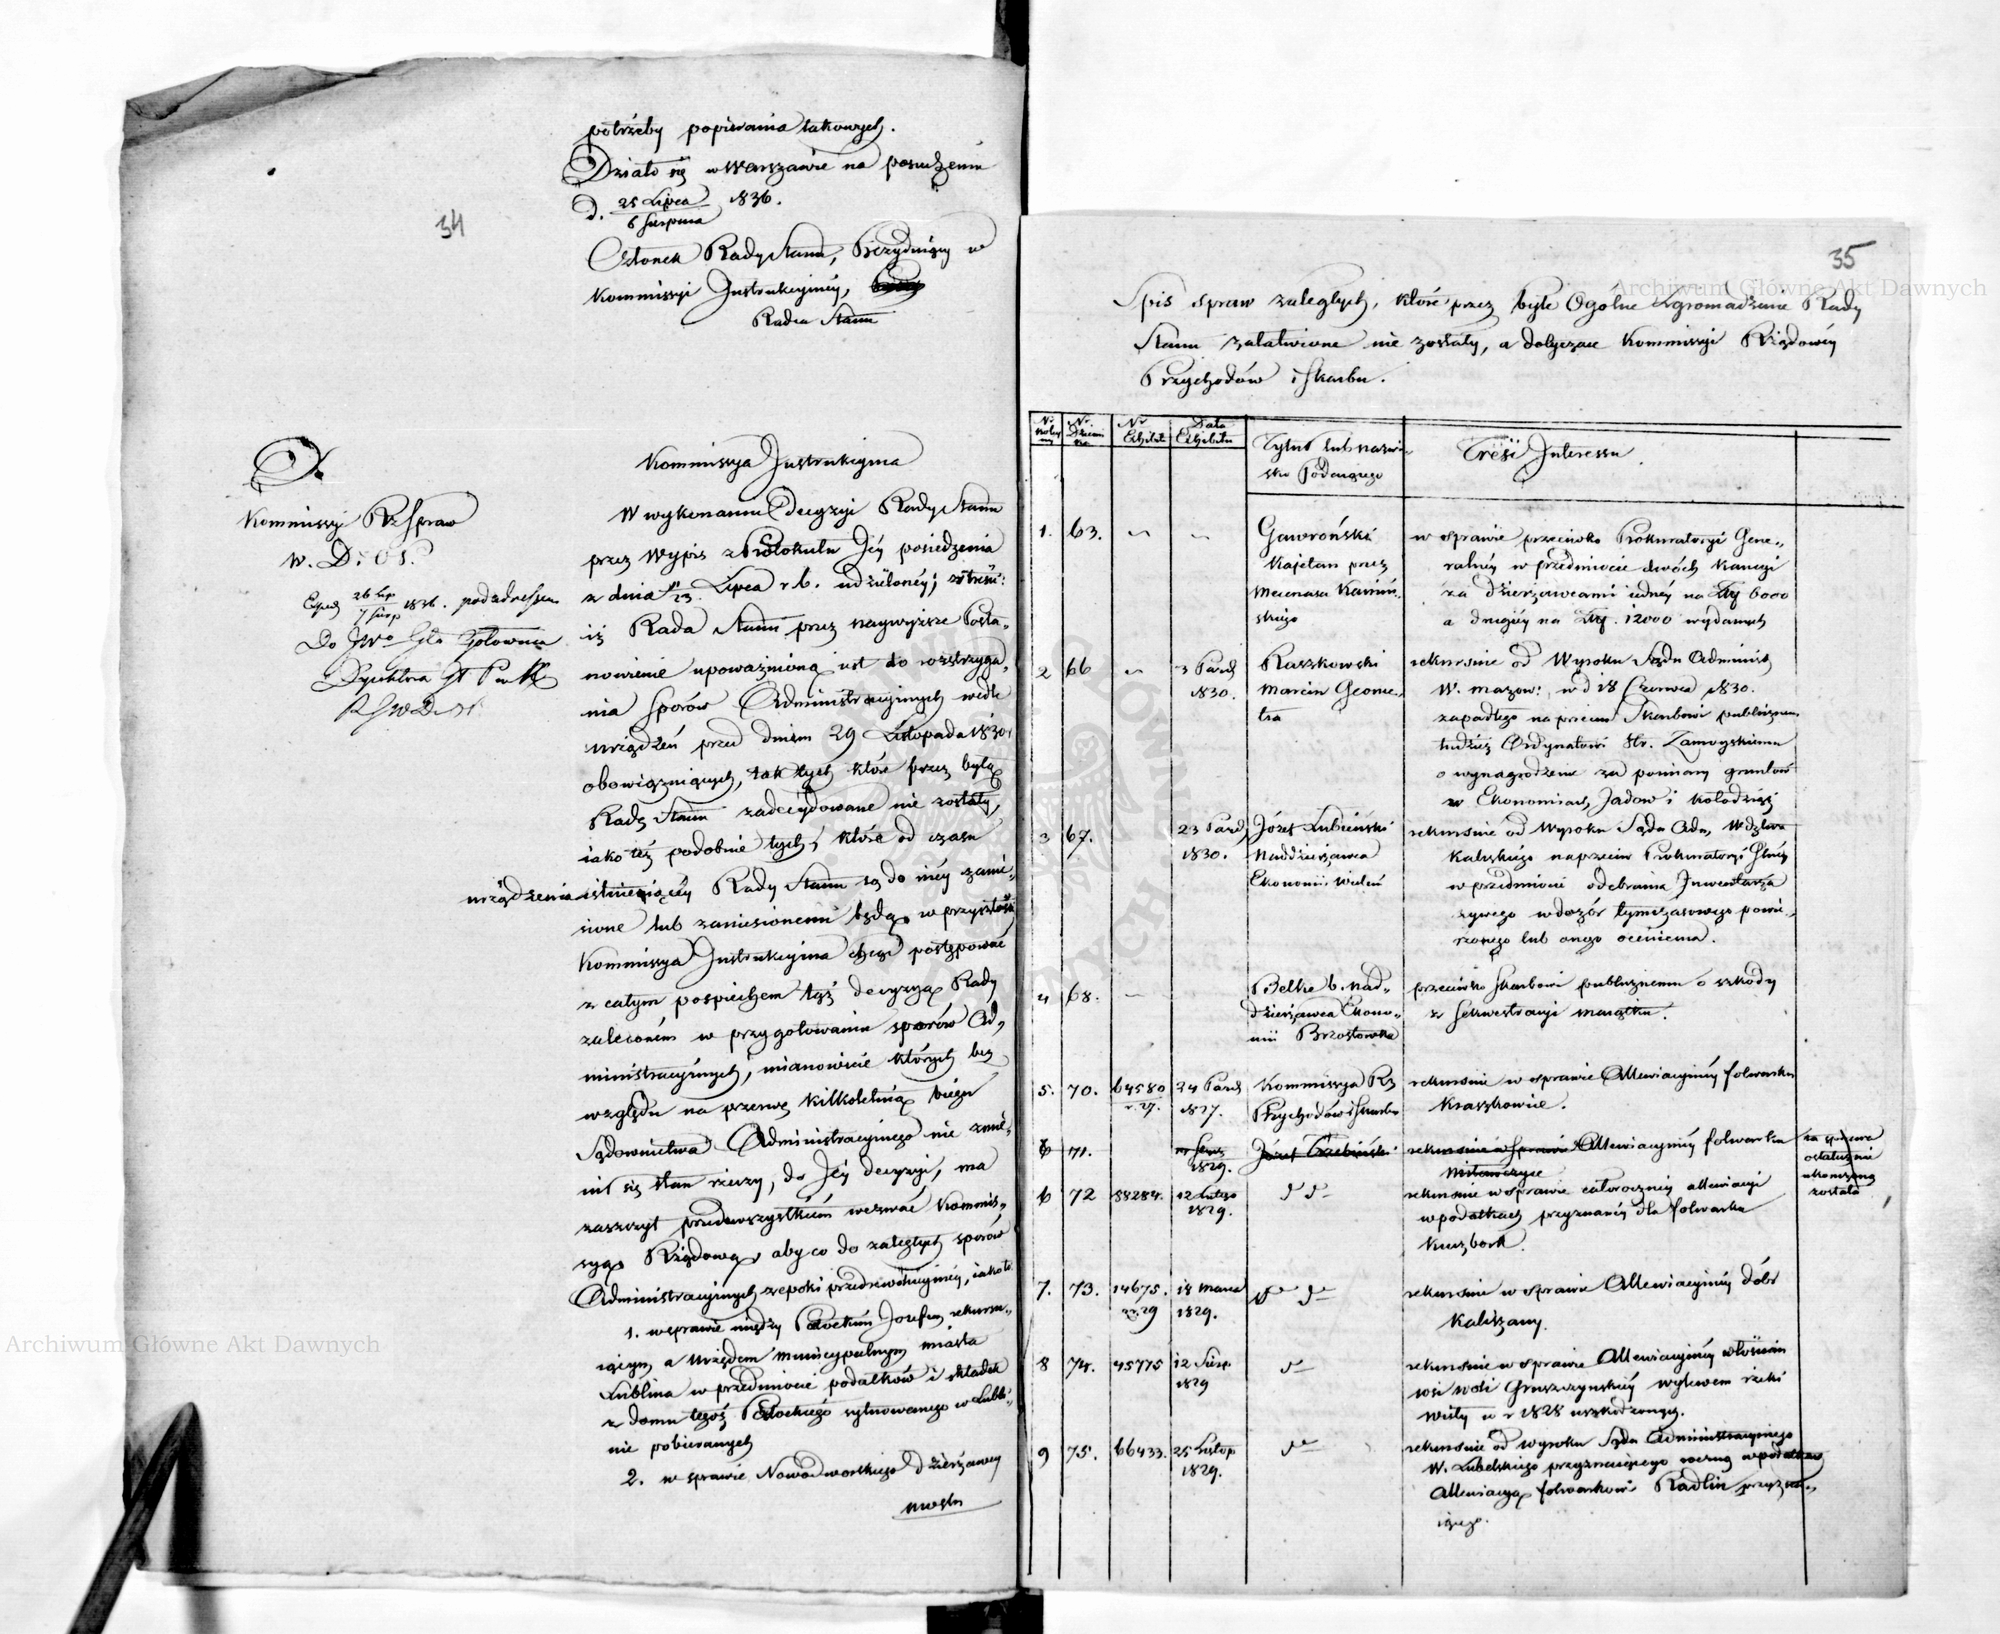 34
potrzeby popierania takowych.
Działo się w Warszawie na posiedzeniu
d. 25 Lipca / 6 Sierpnia 1836.
Członek Rady Stanu, Prezydujący w
Kommissyi Instrukcyinéy,
Radca Stanu
Do
Kommissyi Rz Spraw
W. D. O P.
26 Lip / 7 Sierp 1836. pod adressem
Do JWo Gła Gołowina
Kommissya Instrukcyina
W wykonaniu Decyzyi Rady Stanu
przez Wypis z Protokułu Jéy posiedzenia
z dnia 11/23 Lipca r. b. udzieloney; w treści:
iż Rada Stanu przez naywyższe Posta„
nowienie upoważnioną iest do rozstrzyga„
nia sporów Administracyinych wedle
urządzeń przed dniem 29 Listopada 1830
obowiązuiących, tak tych które przez byłą
Radę Stanu zadecydowane nie zostały,
iako też podobnie tych, które od czasu
urządzenia istnieiącéy Rady Stanu są do niéy zanie„
sione lub zaniesionemi będą w przyszłości
Kommissya Instrukcyina chcąc postępować
z całym pospiechem tąż decyzyą Rady
zaleconém w przygotowaniu sporów Ad„
ministracyinych, mianowicie których bez
względu na przerwę kilkoletnią biegu
Sądownictwa Administracyinego nie zmie„
nił się stan rzeczy, do Jéy decyzyi, ma
zaszczyt przedewszystkiém wezwać Kommis„
syą Rządową, aby co do zaległych sporów
Administracyinych z epoki przedrewolucyinéy, iako to
1. w sprawie między Potockim Józefem rekuru„
iącym a Urzędem municypalnym miasta
Lublina w przedmiocie podatków i składek
z domu tegoż Potockiego sytuowanego w Lubli„
nie pobieranych
2. w sprawie Nowodworskiego Dzierżawcy
35
Spis spraw zaległych, które przez byłe Ogólne Zgromadzenie Rady
Stanu załatwione nie zostały, a dotyczące Kommissyi Rządowéy
Przychodów i Skarbu.
Nr Dzienni ka
Nr Exhibit
Data Exhibitu
Tytuł lub nazwi„
sko Podaiącego
Treść Interessu
1. 63. Gawroński
Kajetan przez
Mecenasa Kamiń„
skiego
w sprawie przeciwko Prokuratoryi Gene„
ralnéy w przedmiocie dwóch kaucyi
za dzierżawcami iednéy na Złp 6000
a drugiéy na Złp. 12000 wydanych
2 66 3 Paźd 1830. Raszkowski
Marcin Geome„
tra
rekursuie od Wyroku Sądu Administ
W. Mazow: w d 18 Czerwca 1830.
zapadłego naprzeciw Skarbowi publicznem.
tudzież Ordynatowi Hr. Zamoyskiemu
o wynagrodzenie za pomiary gruntów
w Ekonomiach Jadow i Kołodziąż
3 67. 23 Paźd 1830. Józef Lubieński
Naddzierżawca
Ekonomii Wieluń
rekursuie od Wyroku Sądu Adm, Wdztwa
Kaliskiego naprzeciw Prokuratoryi Glnéy
w przedmiocie odebrania Inwentarza
żywego w dozór tymczasowego powie„
rzonego lub onego ocenienia.
4 68. Belke b. nad„
dzierżawca Ekono„
mii Brzostowka
przeciwko Skarbowi publicznemu o szkody
z sekwestracyi maiątku.
5. 70. 64580 r. 27. 24 Paźd 1827. Kommissya Rz
Przychodów i Skarbu
rekursuie w sprawie Allewiacyinéy folwarku
Kraszkowice.
6 71. 1829. Józef
rekursuie w sprawie Allewiacyinéy folwarku
ta sprawa
ostatecznie
ukończoną
została
6 72 88284. 12 Lutego 1829.
rekursuie w sprawie całorocznéy allewiacyi
w podatkach przyznanéy dla folwarku
Kuczbork.
7. 73. 14675. 29 18 Marca 1829.
rekursuie w sprawie Allewiacyinéy dóbr
Kaliszany.
8 74. 45775 12 Sierp 1829
rekursuie w sprawie Allewiacyinéy włościan
wsi Woli Gruszczynskiéy wylewem rzeki
Wisły w r 1828 uszkodzonych.
9 75. 66433. 25 Listop 1829.
rekursuie od wyroku Sądu Administracyinego
W. Lubelskiego przyznaiącego roczną w podatkach
Allewiacyą folwarkowi Radlin przyzna„
iącego.
Archiwum Główne Akt Dawnych
Archiwum Główne Akt Dawnych